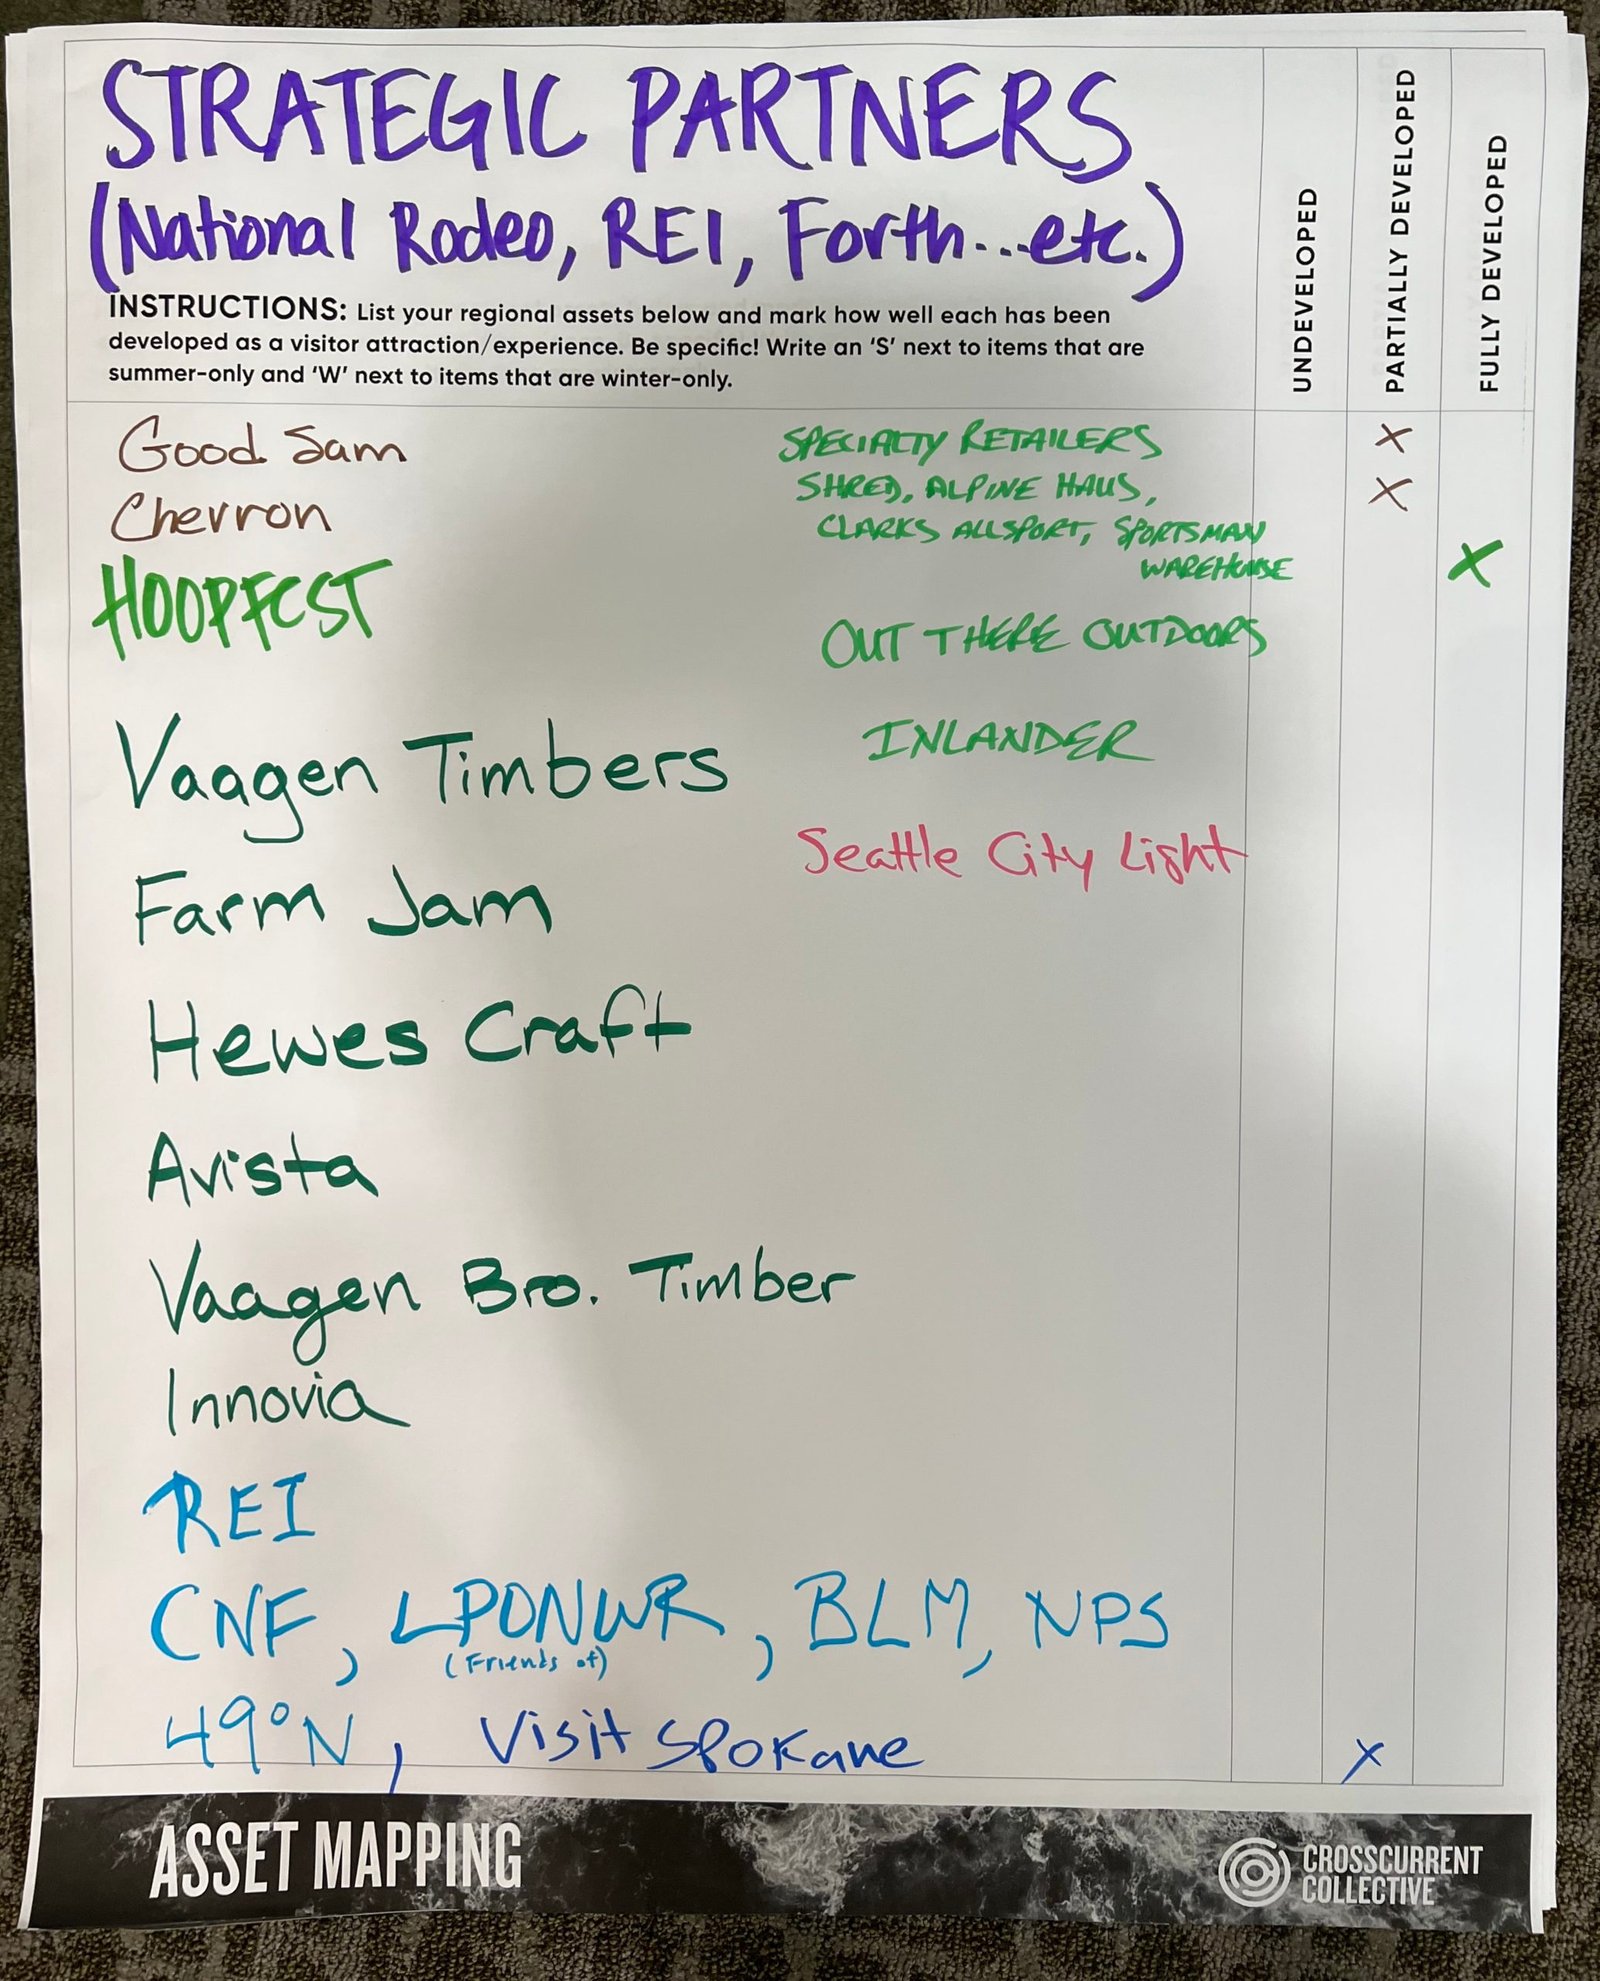 STRATEGIC PARTNERS
(National Rodeo, REI, Forth...etc.)
INSTRUCTIONS: List your regional assets below and mark how well each has been
developed as a visitor attraction/experience. Be specific! Write an ‘S’ next to items that are
summer-only and ‘W’ next to items that are winter-only.
UNDEVELOPED
PARTIALLY DEVELOPED
FULLY DEVELOPED
Good Sam X
Chevron X
HOOPFEST X
Vaagen Timbers
Farm Jam
Hewes Craft
Avista
Vaagen Bro. Timber
Innovia
REI
CNF, LPONWR, BLM, NPS
(Friends of)
49°N, Visit Spokane X
SPECIALTY RETAILERS
SHRED, ALPINE HAUS,
CLARKS ALLSPORT, SPORTSMAN
WAREHOUSE
OUT THERE OUTDOORS
INLANDER
Seattle City Light
ASSET MAPPING
CROSSCURRENT
COLLECTIVE